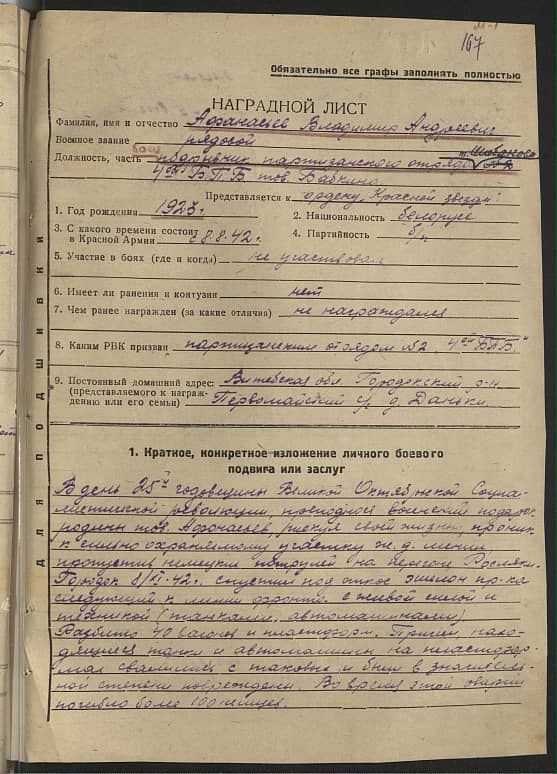 167
Обязательно все графы заполнять полностью
НАГРАДНОЙ ЛИСТ
Фамилия, имя и отчество Афанасьев Владимир Андреевич
Военное звание рядовой
Должность, часть подрывник партизанского отряда
4ой Б.П.Б тов. Бабкина
Представляется к ордену „Красной звезды"
1. Год рождения 1923г. 2. Национальность белорусс
3. С какого времени состоит в Красной Армии с 8.8.42г. 4. Партийность б/п.
5. Участие в боях (где и когда) не участвовал
6. Имеет ли ранения и контузия нет
7. Чем ранее награжден (за какие отличия) не награждался
8. Каким РВК призван партизанским отрядом №2 4ой БПБ"
9. Постоянный домашний адрес: Витебская обл. Городокский р-н
(представляемого к награждению или его семьи) Первомайский с/с д. Даньки.
ДЛЯ ПОДШИВКИ
1. Краткое, конкретное изложение личного боевого
подвига или заслуг
В день 25й годовщины Великой Октябрьской Социа-
листической революции, преподнося военский подарок
родине тов. Афанасьев, рискуя свой жизнью, проник
к сильно охраняемому участку ж.д. линии
пропустив немецкий патрулей на перегоне Росляки-
Городок 8/XI-42г. спустил под откос эшелон пр-ка
следующий к линии фронта с живой силой и
техникой (танками, автомашинами).
Разбито 40 вагон и пластформ. Причем, нахо-
дящиеся танки и автомашины на пластфор-
мах свалились с таковых и были в значитель-
ной степени повреждены. Во время этой аварии
погибло более 100 немцев.